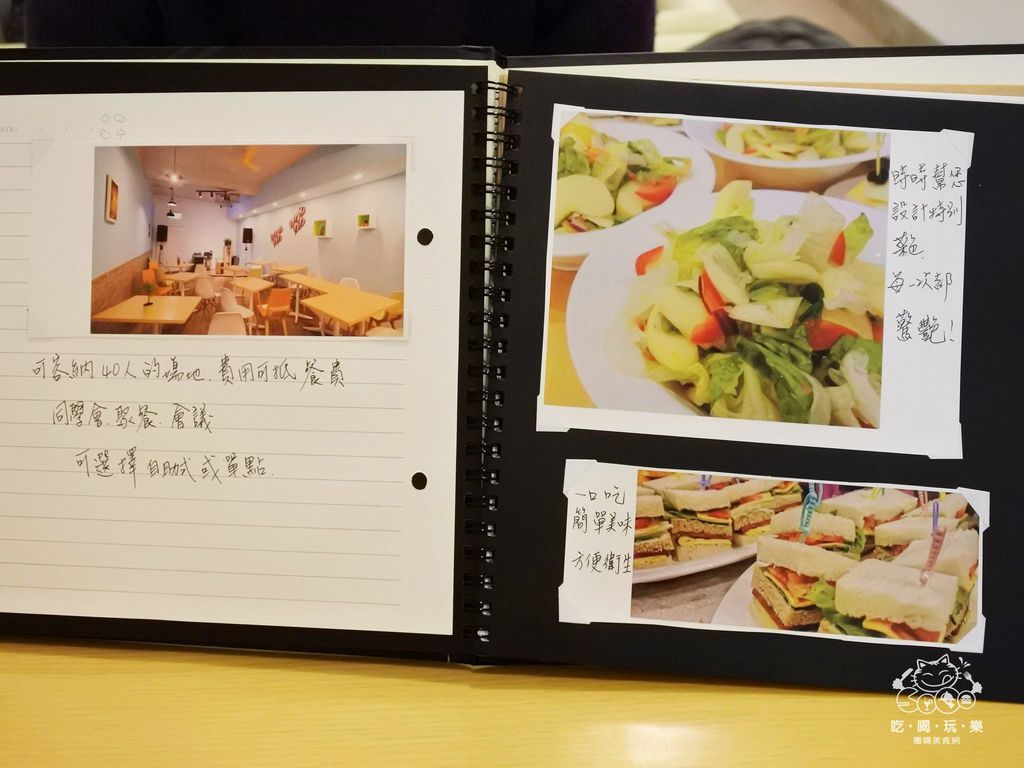 可容納40人的場地.費用可抵餐費
同學會.聚餐.會議
可選擇自助式或單點.
時時幫您
設計特別
菜色.
每一次都
驚艷!
一口吃
簡單美味
方便衛生
吃·喝·玩·樂
團購美食網